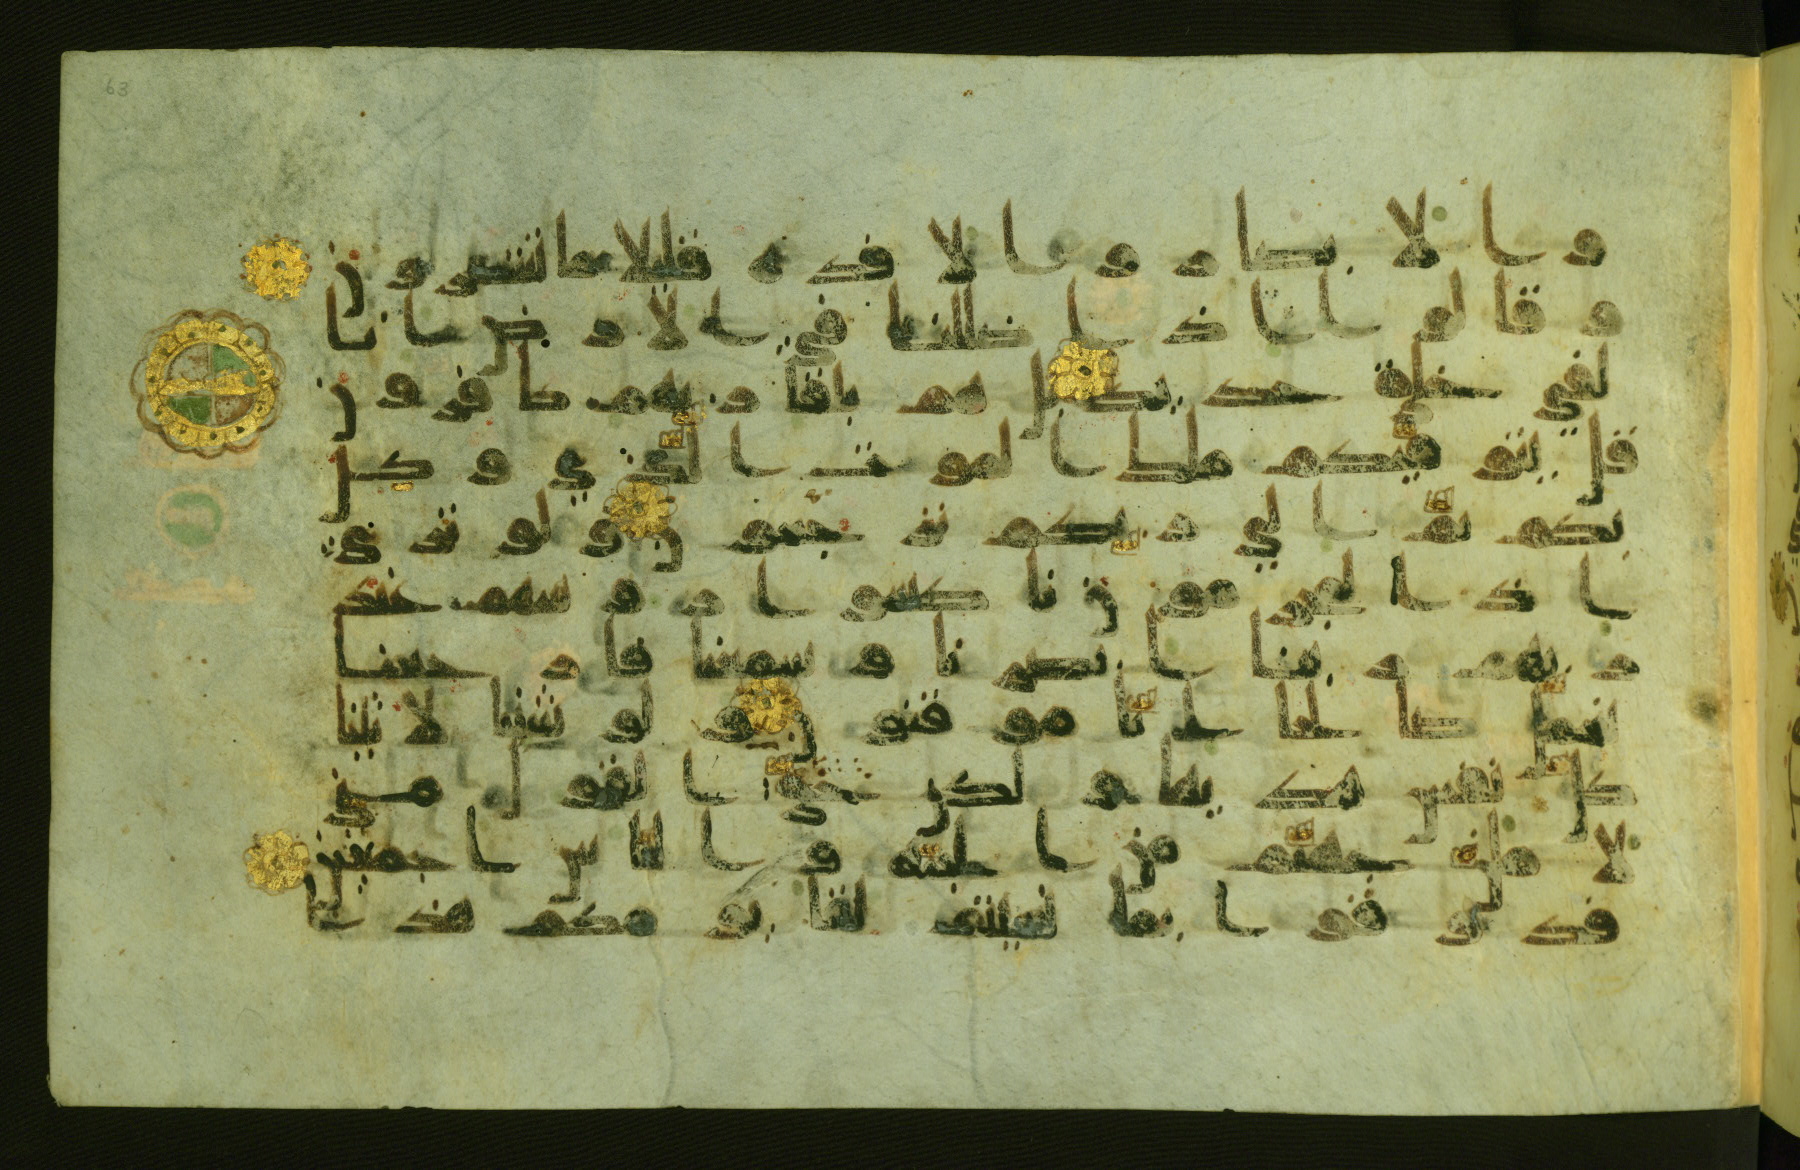 63
والابصار والافدة قليلا ما تشكرون
وقالوا اذا ضللنا في الارض انا
لفي خلق جديد بل هم بلقا ربهم كافرون
قل يتوفيكم ملك الموت الذي وكل
بكم ثم الي ربكم ترجعون ولو تري
اذ المجرمون ناكسوا روسهم عند
ربهم ربنا ابصرنا وسمعنا فارجعنا
نعمل صالحا انا موقنون ولو شئنا لاتينا
كل نفس هديها ولكن حق القول مني
لاملن جهنم من الجنة والناس اجمعين
فذوقوا بما نسيتم لقا يومكم هذا